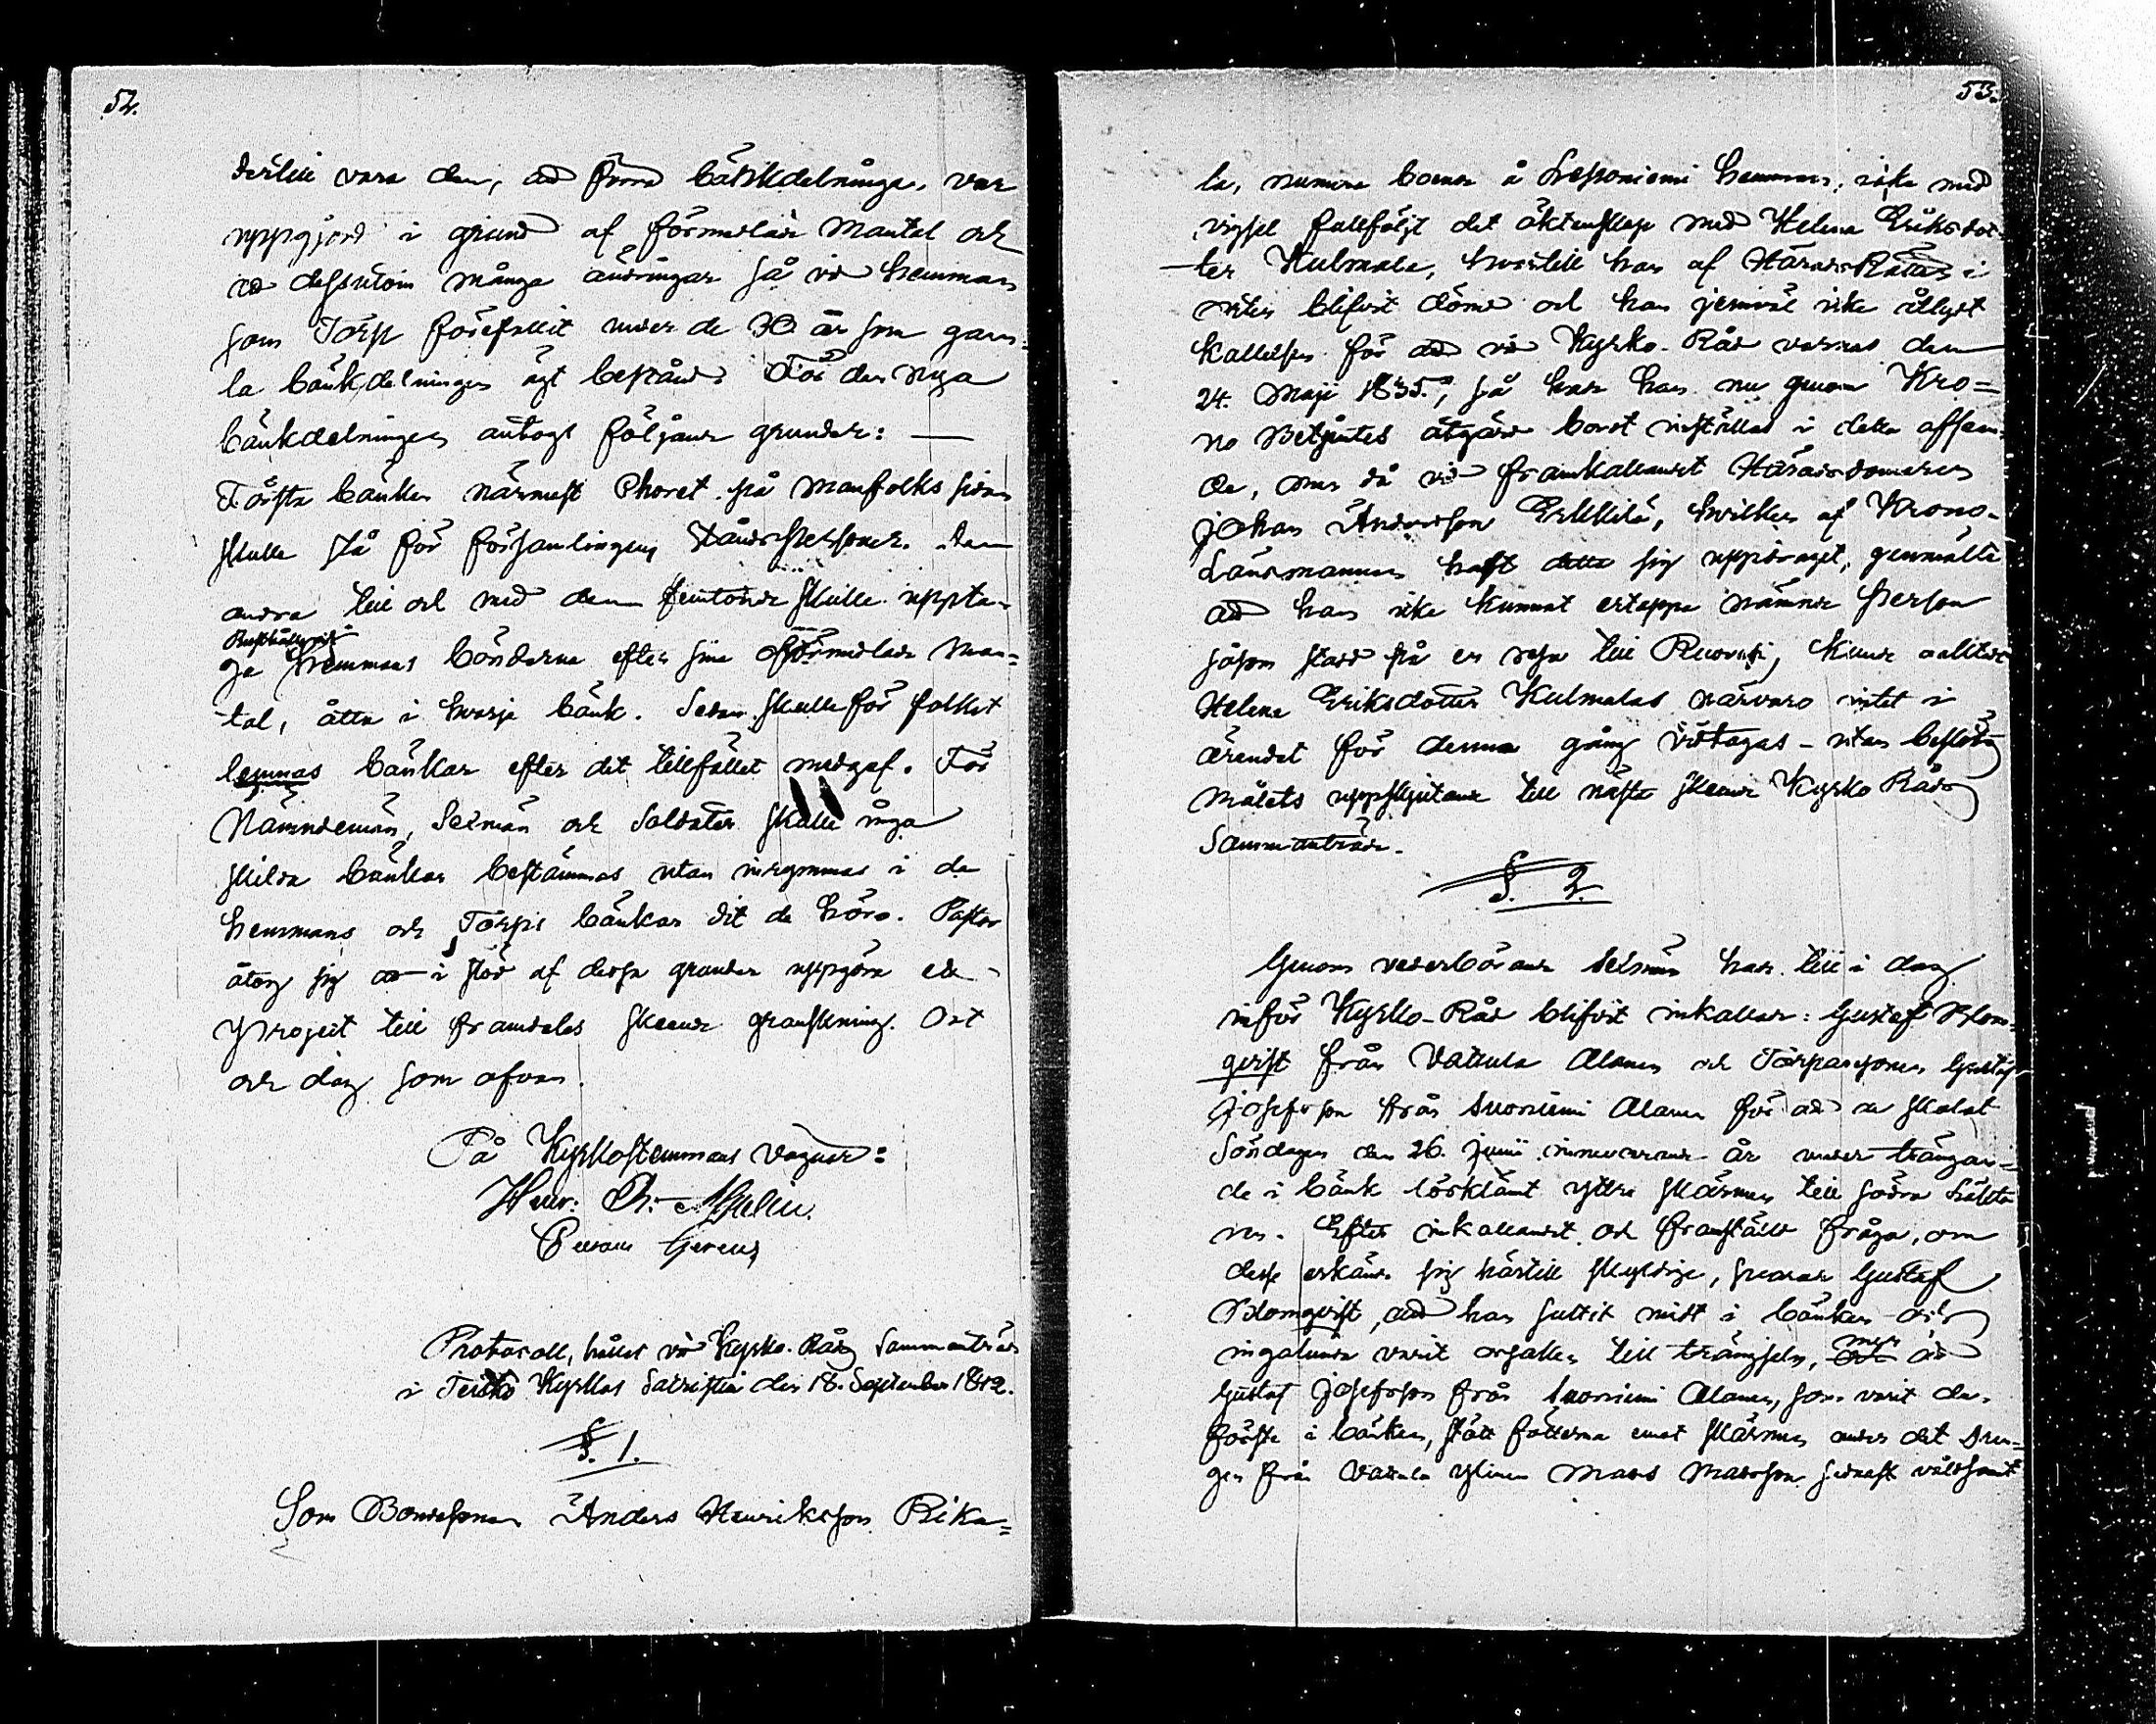 52.
dertill vara den, att förra bänkdelningen var
uppgjord i grund af förmedlade Mantal och
dessutom många ändringar så vid hemman
som Torp förefallit under de 30 år som gam-
la bänkdelningen ägt bestånd. För den nya
bänkdelningen antogs följande grunder: —
Första bänken närmast Choret på manfolks sidan
skulle stå för församlingens Ståndspersoner. den
andra till och med den femtonde skulle uppta-
ga Besutne hemmans bönderna efter sine oförmedlade Man-
tal, åtta i hvarje bänk. Sedan skulle för folket
lemnas bänkar efter det tillfället medgaf. För
Nämndemän, Sexmän och Soldater skulle inga
skilda bänkar bestämmas utan inrymmas i de
hemmans och Torps bänkar dit de höra. Pastor
åtog sig i stöd af dessa grunder uppgöra ett
Project till framdeles skeende granskning. Ort
och dag som ofvan.
På Kyrkostemmans vägnar:
Henr:
Protocoll, hållet vid Kyrko-Råds Sammanträde
i Teisko Kyrkas Sacristia den 18. September 1842.
§. 1.
Som Bondesonen Anders Henriksson Rika-
53.
la, numera boende å hemman, icke med
vigsel fullföljt det äktenskap med Helena Eriksdot-
ter Kulmala, hvartill han af Härads Rätten i
orten blifvit dömd och han jemväl icke åtlydt
Kallelsen för att vid Kyrko-Råd varnas den
24. Maji 1835., så har han nu genom Kro-
no Betjentes åtgärd bordt inställas i detta afseen-
de, men då vid framkallandet Häradsdomaren
Johan Andersson Erkkilä, hvilken af Krono-
Länsmannen haft detta sig uppdraget, genmälte
att han icke kunnat ertappa nämnde Person
såsom stadd på en resa till Ruovesi, kunde oaktadt
Helena Eriksdotter Kulmalas närvaro intet i
ärendet för denna gång vidtagas – utan beslöts
målets uppskjutande till nästa skeende Kyrko Råds
Sammanträde.
§. 2.
Genom vederbörande Sexmän har till i dag
inför Kyrko-Råd blifvit inkallade: Gustaf Blom-
qvist från Vattula Alanen och Torparesonen Gustaf
Josefsson från Suoniemi Alanen för att de skolat
Söndagen den 26. Junii innevarande år under trängan-
de i bänk lösklämt yttre skärmen till södra
nes. Efter inkallandet och framställd fråga, om
desse erkände sig härtill skyldige, svarade Gustaf
Blomqvist, att han suttit midt i bänken och
ingalunda varit orsaken till trängseln, men att
Gustaf Josefsson från Suoniemi Alanen, som varit den
förste i bänken, stött fötterna emot skärmen under det Dren-
gen från Vattula Ylinen Mats Matsson våldsamt